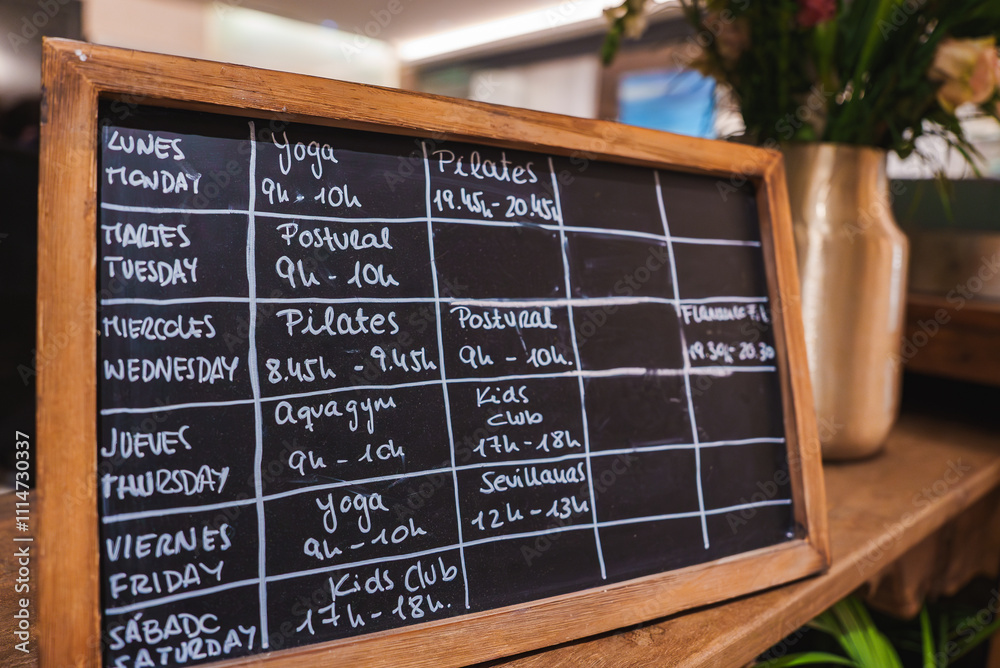 LUNES
MONDAY
Yoga
9h - 10h
Pilates
19.45h - 20.45h
MARTES
TUESDAY
Postural
9h - 10h
MIERCOLES
WEDNESDAY
Pilates
8.45h - 9.45h
Postural
9h - 10h.
19.30h - 20.30
JUEVES
THURSDAY
Aquagym
9h - 10h.
Kids
club
17h - 18h
VIERNES
FRIDAY
Yoga
9h - 10h
Sevillanas
12h - 13h
SÁBADO
SATURDAY
Kids Club
17h - 18h.
Adobe Stock | #1114730337